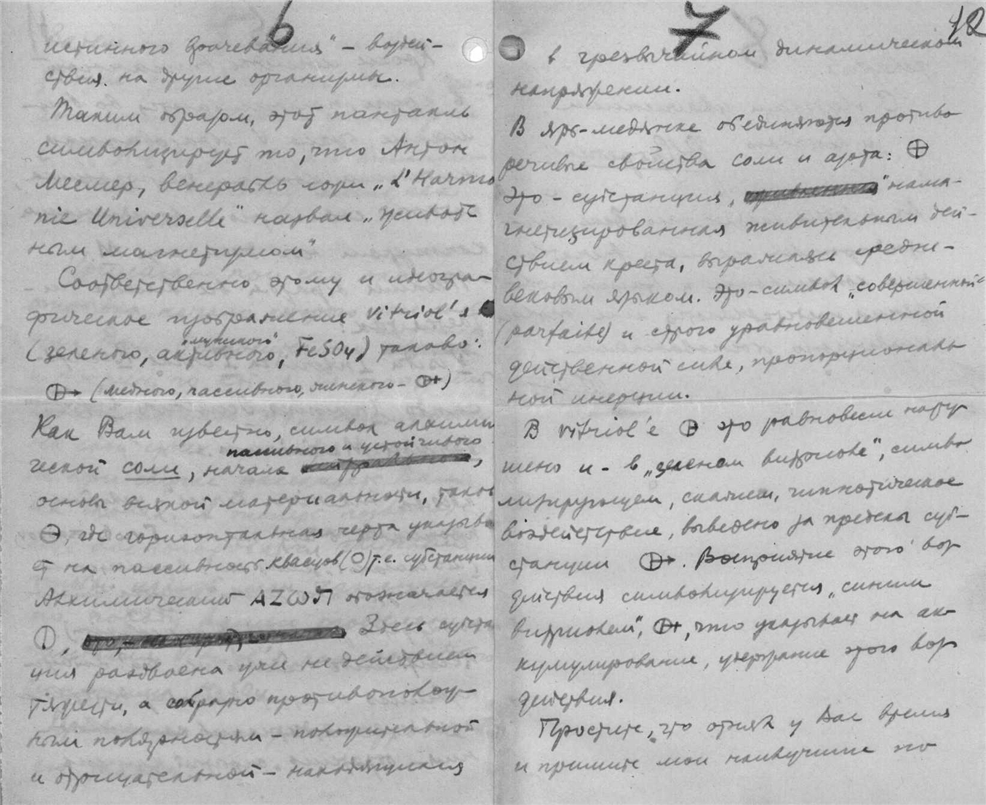 6
истинного врачевания" – воздей-
ствия на другие организмы.
Таким образом, этот пантакль
символизирует то, что Антон
Месмер, венерабль ложи „L'Harmo
nie Universelle" назвал „живот
ным магнетизмом"
Соответственно этому и иногра-
фическое изображение Vitriol'я
(зеленого, мужского активного, FeSO4) таково:
(медного, пассивного, женского – )
Как Вам известно, символ алхими
пассивного и устойчивого
ческой соли, начала ,
основы всякой материальности, таков
⊖, где горизонтальная черта указыва
ет на пассивность квасцов (○) т.е. субстанции
Алхимический AZ обозначается
⦶, Здесь субста
ция раздвоена уже не действием
тяжести, а собрано противополож-
ными полярностями – положительной
и отрицательной –
7
12
в чрезвычайном динамическом
напряжении.
В ярь-медянке объединяются противо
речивые свойства соли и азота: ⊕
Это – субстанция, "нама-
гнетизированная живительным дей-
ствием креста, выражаясь средне-
вековым языком. Это – символ „совершенной"
(parfaite) и строго уравновешенной
действенной силе, пропорциональ
ной инерции.
В Vitriol'е это равновесие нару
шено и – в „зеленом витриоле", симво
лизирующем, скажем, гипнотическое
воздействие, выведено за пределы суб-
станции . Восприятие этого воз
действия символизируется „синим
витриолем", , что указывает на ак-
кумулирование, удержание этого воз
действия.
Простите, что отнял у Вас время
и примите мои наилучшие по